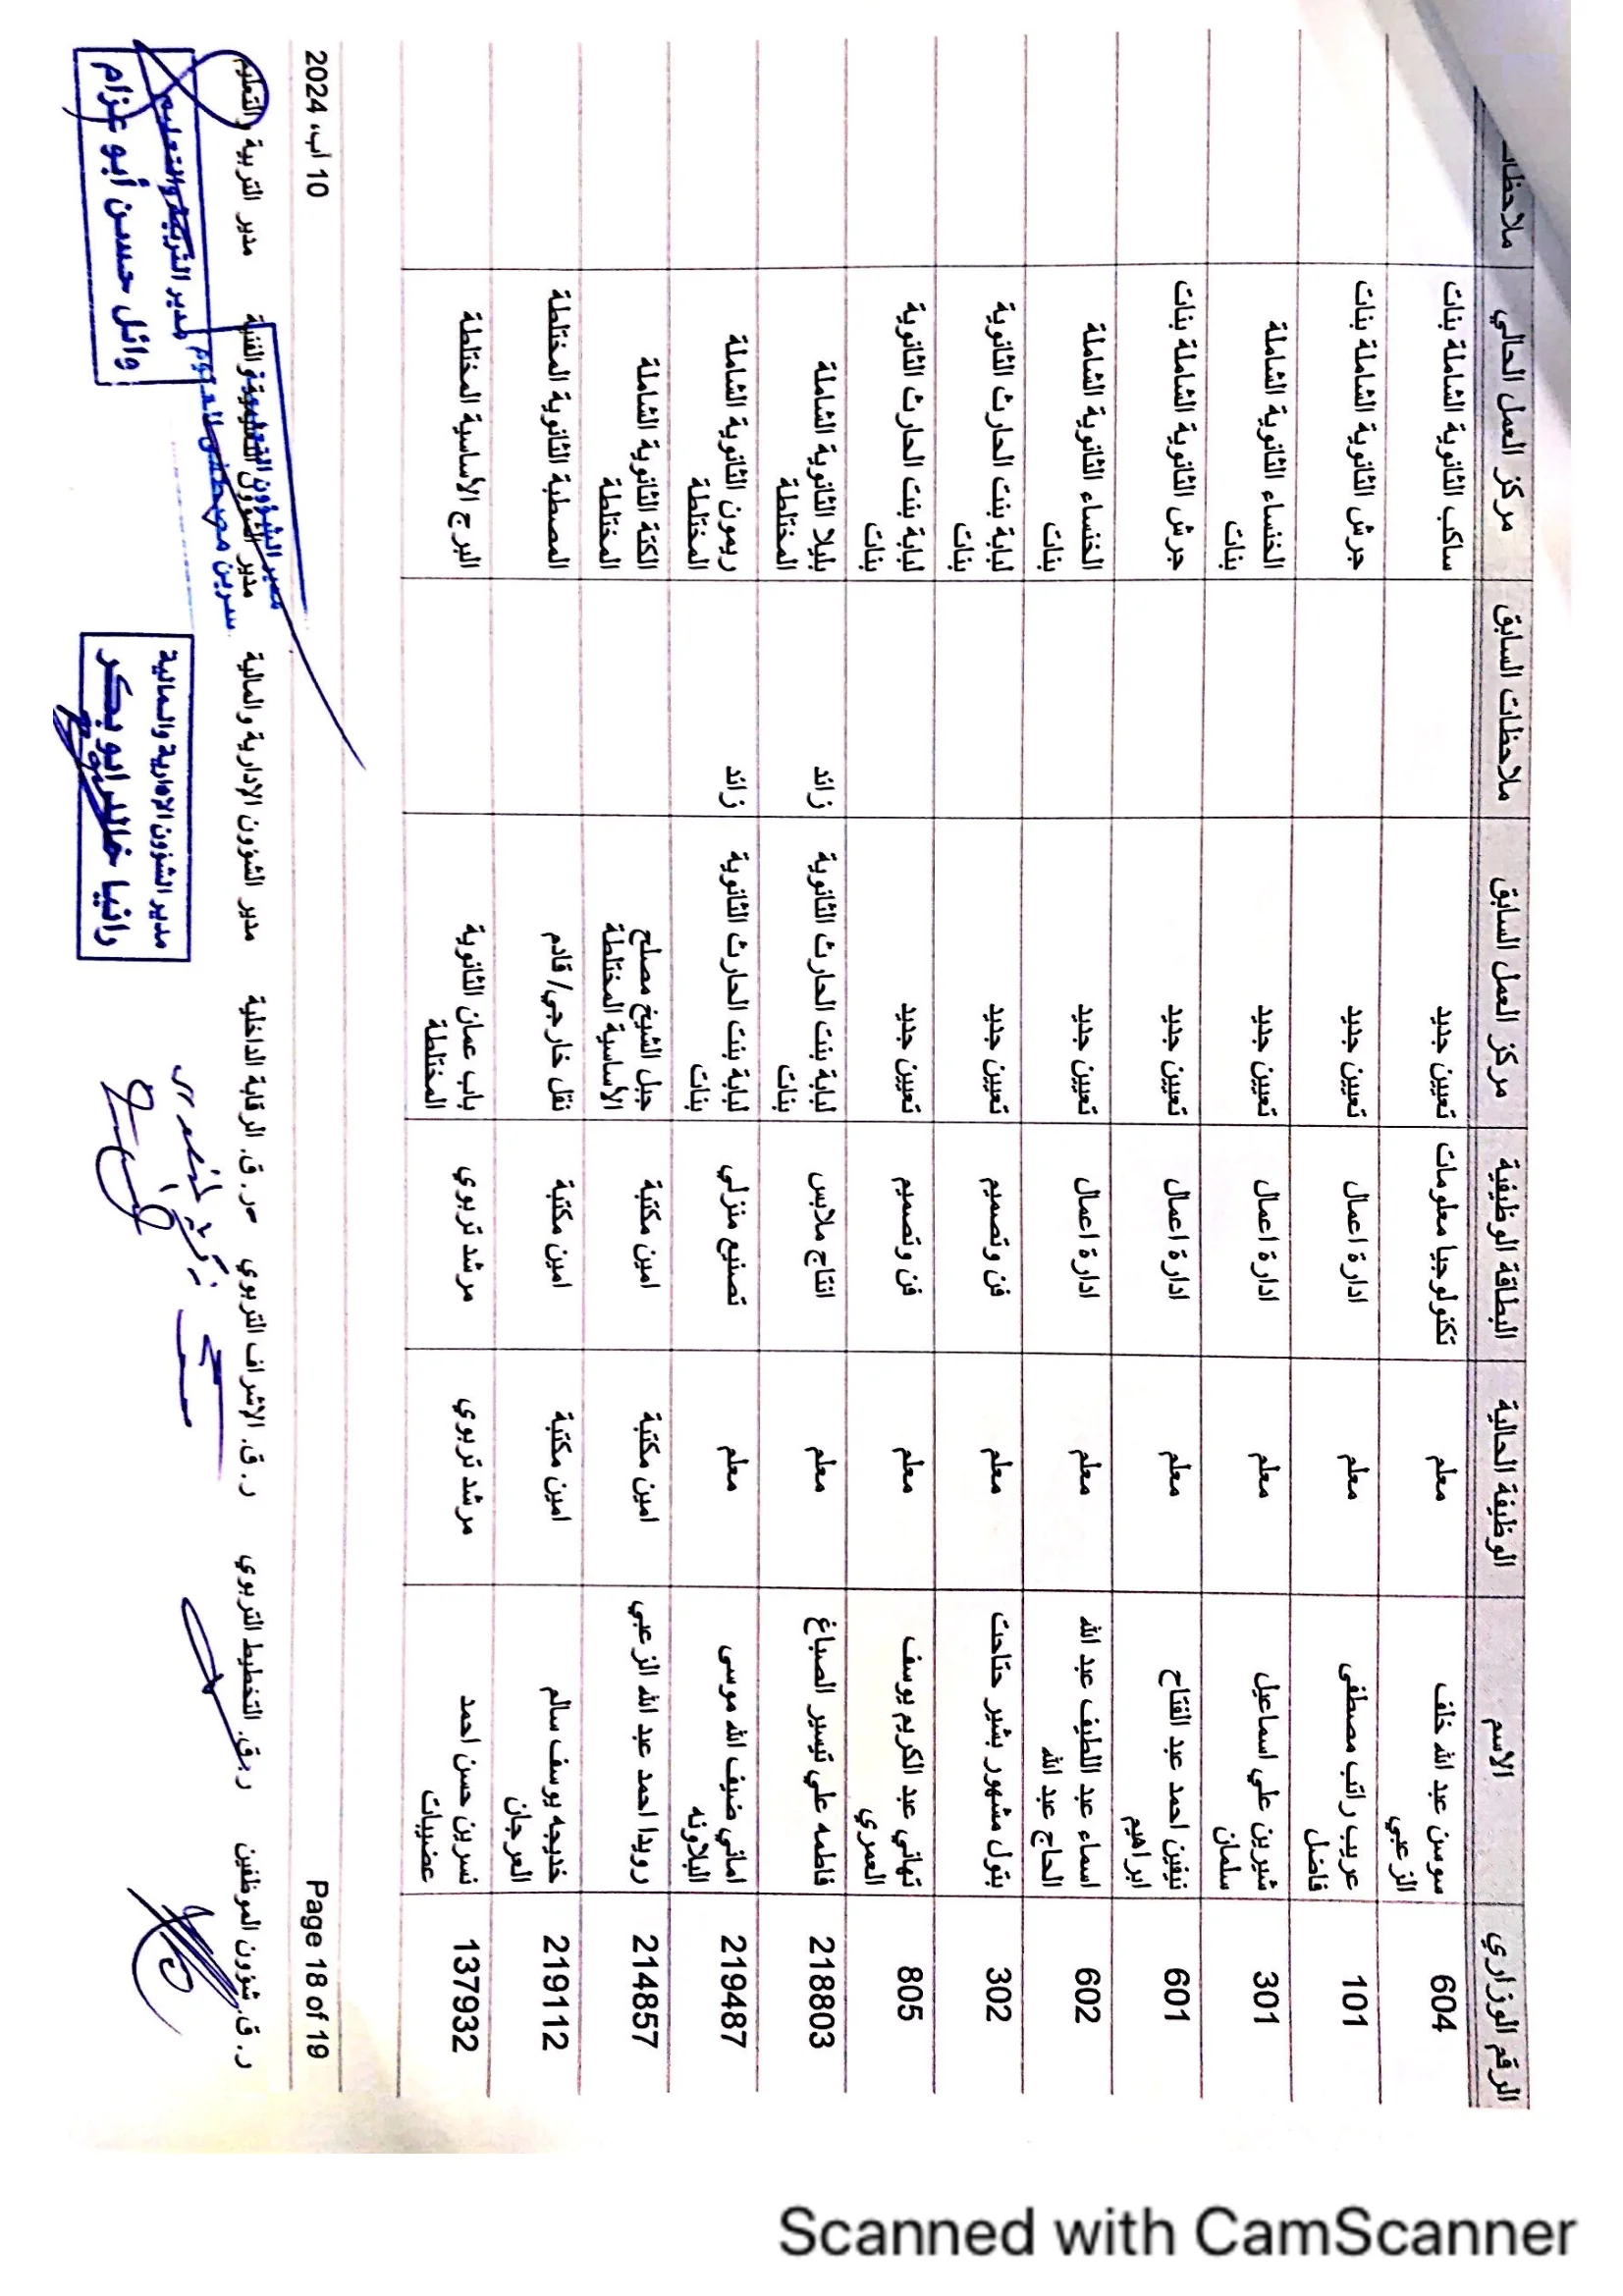 الرقم الوزاري الاسم الوظيفة الحالية البطاقة الوظيفية مركز العمل السابق ملاحظات السابق مركز العمل الحالي ملاحظات
604 سوسن عبد الله خلف الزعبي معلم تكنولوجيا معلومات تعيين جديد ساكب الثانوية الشاملة بنات
101 عريب راتب مصطفى فاضل معلم ادارة اعمال تعيين جديد جرش الثانوية الشاملة بنات
301 شيرين علي اسماعيل سلمان معلم ادارة اعمال تعيين جديد الخنساء الثانوية الشاملة بنات
601 نيفين احمد عبد الفتاح ابراهيم معلم ادارة اعمال تعيين جديد جرش الثانوية الشاملة بنات
602 اسماء عبد اللطيف عبد الله الحاج عبد الله معلم ادارة اعمال تعيين جديد الخنساء الثانوية الشاملة بنات
302 بتول مشهور بشير حتاحت معلم فن وتصميم تعيين جديد لبابة بنت الحارث الثانوية بنات
805 تهاني عبد الكريم يوسف العمري معلم فن وتصميم تعيين جديد لبابة بنت الحارث الثانوية بنات
218803 فاطمه علي تيسير الصباغ معلم انتاج ملابس لبابة بنت الحارث الثانوية بنات زائد بليلا الثانوية الشاملة المختلطة
219487 اماني ضيف الله موسى البلاونه معلم تصنيع منزلي لبابة بنت الحارث الثانوية بنات زائد ريمون الثانوية الشاملة المختلطة
214857 رويدا احمد عبد الله الزعبي امين مكتبة امين مكتبة جبل الشيخ مصلح الأساسية المختلطة الكتة الثانوية الشاملة المختلطة
219112 خديجه يوسف سالم العرجان امين مكتبة امين مكتبة نقل خارجي/ قادم المصطبة الثانوية المختلطة
137932 نسرين حسن احمد عضيبات مرشد تربوي مرشد تربوي باب عمان الثانوية المختلطة البرج الأساسية المختلطة
Page 18 of 19 10 آب، 2024
ر. ق. شؤون الموظفين ر.ق. التخطيط التربوي ر. ق. الإشراف التربوي ر. ق. الرقابة الداخلية مدير الشؤون الإدارية والمالية مدير الشؤون التعليمية والفنية مدير التربية والتعليم
مدير الشؤون الإدارية والمالية
رانيا خالد ابو بكر
مدير الشؤون التعليمية
مدير التربية والتعليم
وائل حسن أبو عزام
Scanned with CamScanner